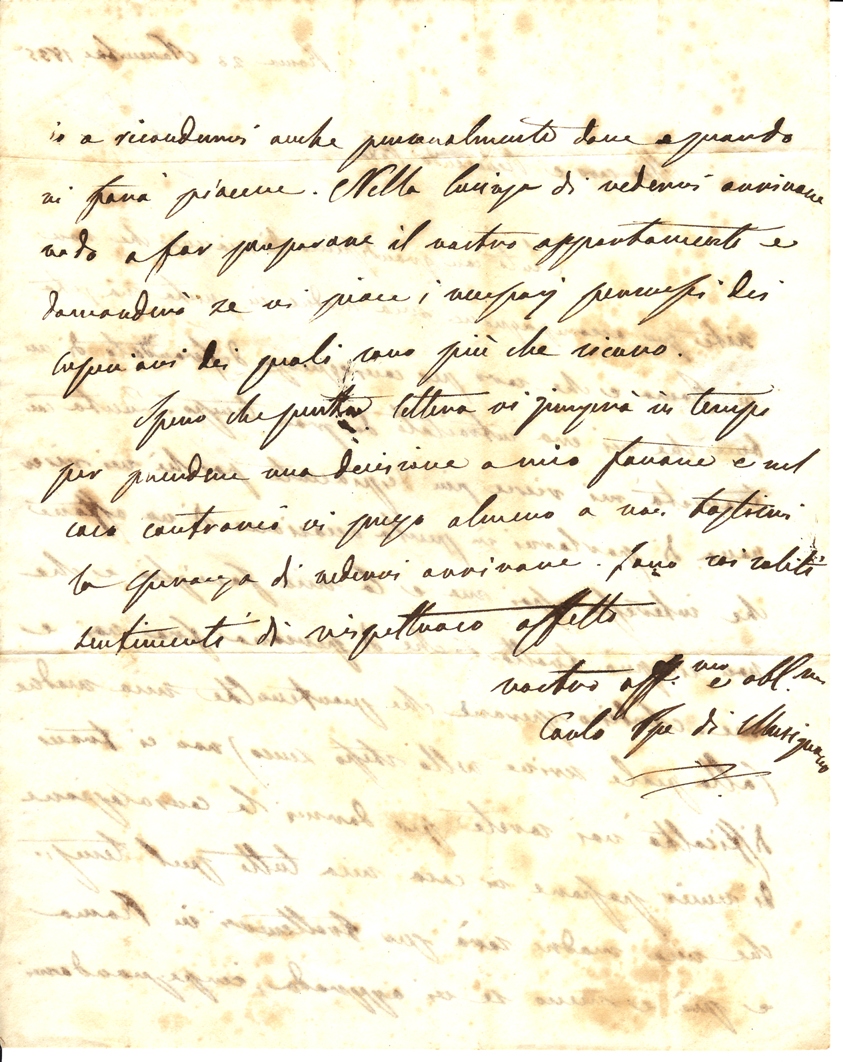 io a ricondurvi anche personalmente dove e quando
vi farà piacere. Nella lusinga di vedervi arrivare
vado a far preparare il vostro appartamento e
domanderò se vi piace i necessarj permessi dei
superiori dei quali sono più che sicuro.
Spero che questa lettera vi giungerà in tempo
per prendere una decisione a mio favore e nel
caso contrario vi prego almeno a non togliermi
la speranza di vedervi arrivare. Sono coi soliti
sentimenti di rispettuoso affetto
vostro aff.mo e obl.mo
Carlo Ppe di Musignano